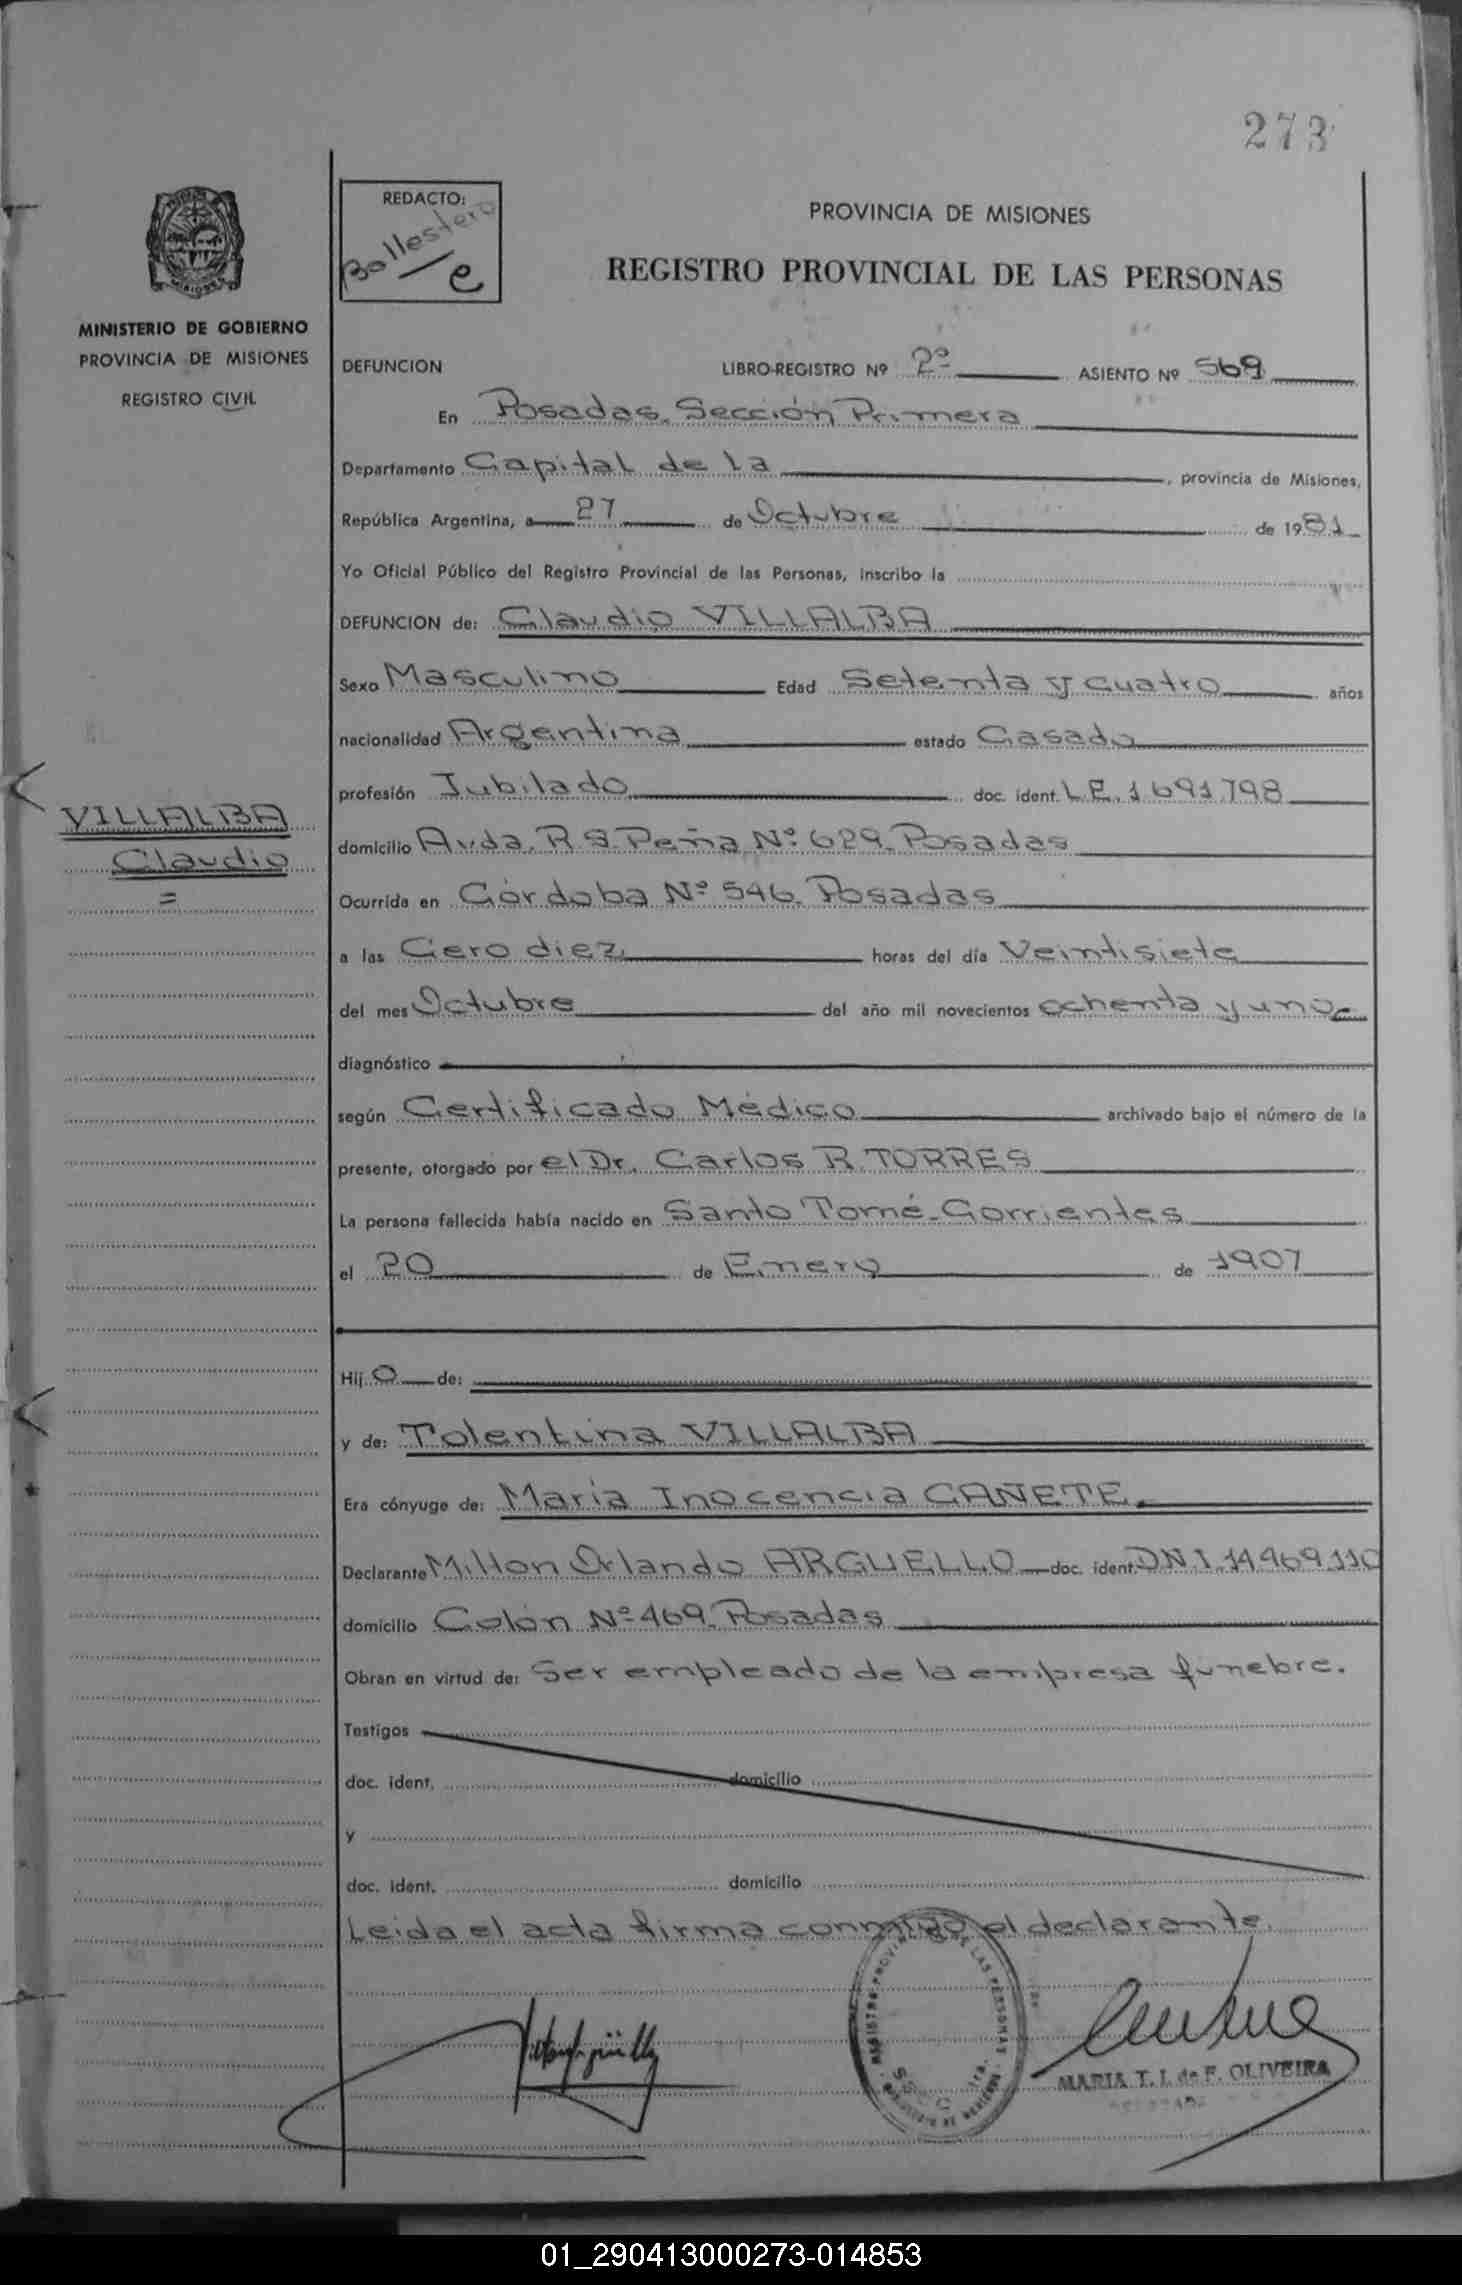 273
REDACTO:
Ballestero
e
PROVINCIA DE MISIONES
REGISTRO PROVINCIAL DE LAS PERSONAS
MINISTERIO DE GOBIERNO
PROVINCIA DE MISIONES
REGISTRO CIVIL
DEFUNCION LIBRO-REGISTRO Nº 2º ASIENTO Nº 569
En Posadas, Sección Primera
Departamento Capital de la, provincia de Misiones,
República Argentina, a 27 de Octubre de 1981
Yo Oficial Público del Registro Provincial de las Personas, inscribo la
DEFUNCION de: Claudio VILLALBA
Sexo Masculino Edad Setenta y cuatro años
nacionalidad Argentina estado Casado
profesión Jubilado doc. ident. L.E. 1691798
VILLALBA
Claudio
domicilio Avda. R. S. Peña Nº 629. Posadas
Ocurrida en Córdoba Nº 546. Posadas
a las Cero diez horas del día Veintisiete
del mes Octubre del año mil novecientos ochenta y uno
diagnóstico
según Certificado Médico archivado bajo el número de la
presente, otorgado por el Dr. Carlos R. TORRES
La persona fallecida había nacido en Santo Tomé - Corrientes
el 20 de Enero de 1907
Hijo de:
y de: Tolentina VILLALBA
Era cónyuge de: Maria Inocencia CAÑETE.
Declarante Milton Orlando ARGUELLO doc. ident. D.N.I. 14.469.110
domicilio Colón Nº 469. Posadas
Obran en virtud de: Ser empleado de la empresa fúnebre.
Testigos
doc. ident. domicilio
y
doc. ident. domicilio
Leida el acta firma conmigo el declarante.
MARIA T. I. de F. OLIVEIRA
01_290413000273-014853